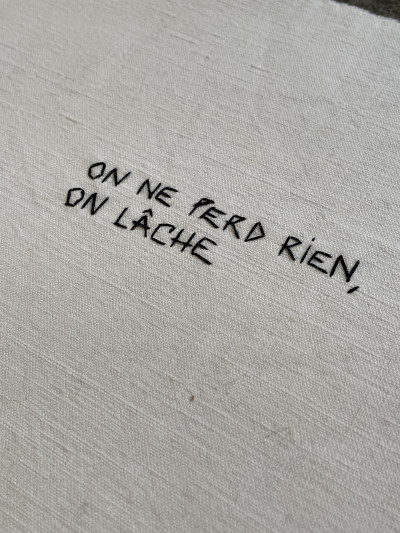 ON NE PERD RiEN,
ON LÂCHE